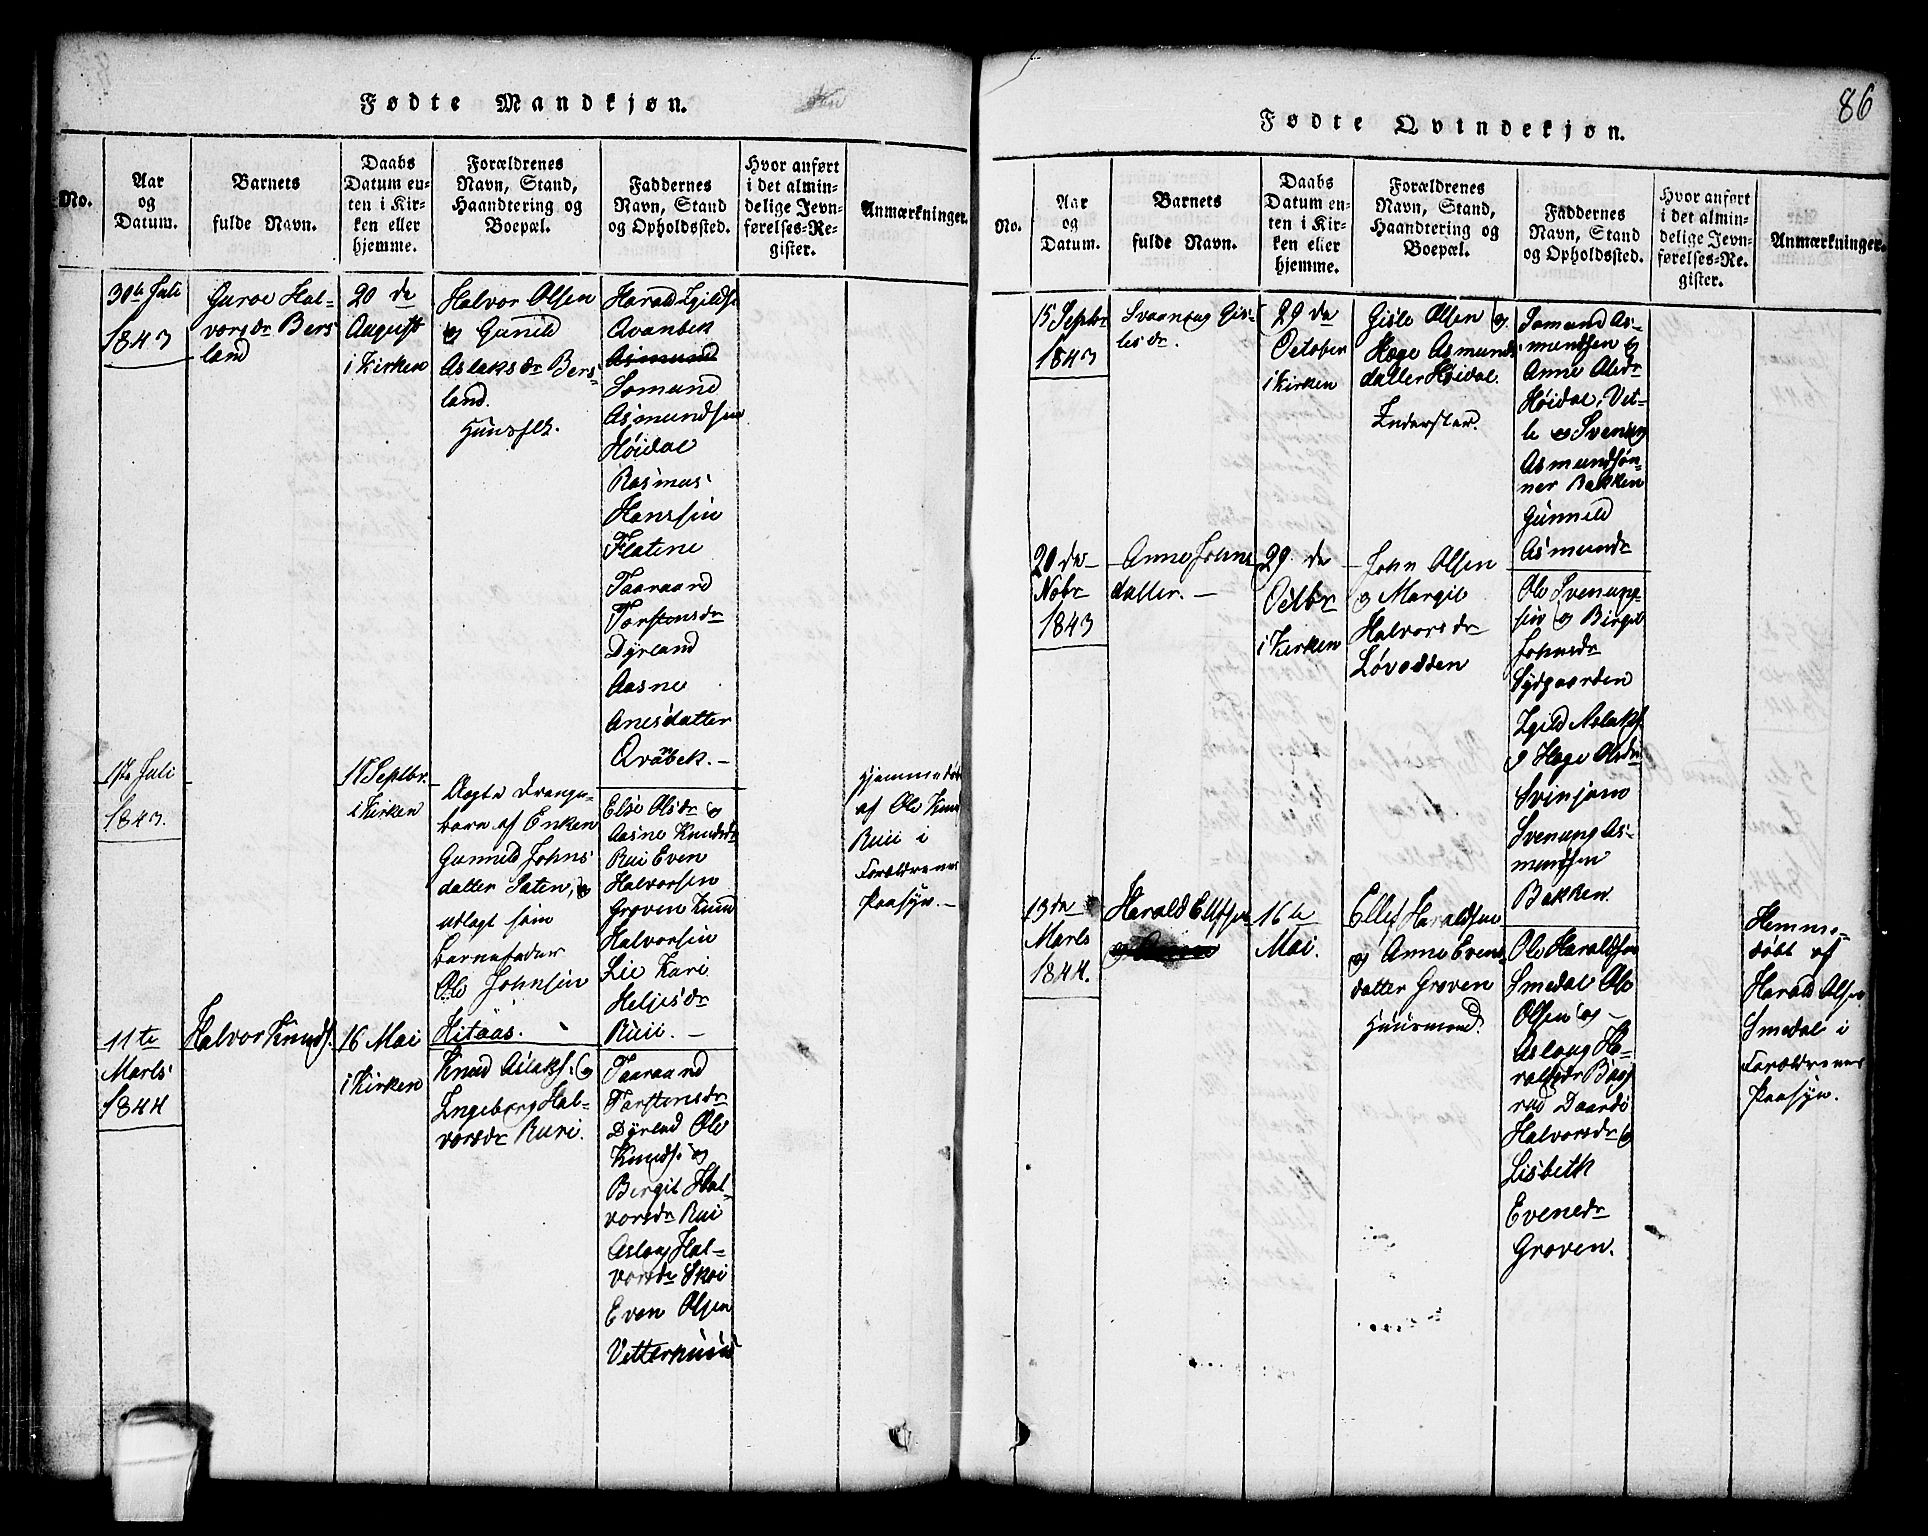 Fødte Mandkjøn.
No.
Aar
og
Datum.
Barnets
fulde Navn.
Daabs
Datum en-
ten i Kir-
ken eller
hjemme.
Forældrenes
Navn, Stand,
Haandtering og
Boepæl.
Faddernes
Navn, Stand
og Opholdssted.
Hvor anført
i det almin-
delige Jevn-
førelses-Re-
gister.
Anmærkninger.
30te Juli
1843
Guroe Hal-
vorsdr Bers
land
20 de
August
i Kirken
Halvor Olsen
og Gunild
Aslaksdr Bers-
land.
Huusflk.
Harald Egilds.
Qvanbek
Asmund
Somund
Asmundsen
Høidal
Rasmus
Hanssen
Flatene
Taaraand
Torstensdr
Dyrland
Aasne
Anesdatter
Qvabek. -
17de Juli
1843.
17 Septbr.
i Kirken
Aagte Drenge-
barn af Enken
Gunnild Johns
datter Saten, og
udlagt som
barnefader
Ole Johnsen
Hitaas.
Else Olsdr og
Aasne Knudsdr
Rui Even
Halvorsen
Groven Knud
Halvorsen
Lie Kari
Heljesdr
Ruii. -
Hjemmedøbt
af Ole Knud
Ruii i
Forældrenes
Paasyn. -
11te
Marts
1844
Halvor Knuds.
16 Mai
i Kirken
Knud Aslaks. og
Ingeborg Hal-
vorsdr Rui.
Taaraand
Torstensdr
Dyrland Ole
Knuds. og
Bergit Hal-
vorsdr Rui
Aslaug Hal-
vorsdr Skoi
Even Olsen
Vetterhuus
86
Fødte Qvindekjøn.
No.
Aar
og
Datum.
Barnets
fulde Navn.
Daabs
Datum en-
ten i Kir-
ken eller
hjemme.
Forældrenes
Navn, Stand,
Haandtering og
Boepæl.
Faddernes
Navn, Stand
og Opholdssted.
Hvor anført
i det almin-
delige Jevn-
førelses-Re-
gister.
Anmærkninger.
15 Septbr
1843
Svanaug Gis-
lesdr.
29 de
October
i Kirken
Gisle Olsen og
Hæge Asmunds
datter Høidal.
Inderster.
Somund As-
mundsen og
Anne Olsdr
Høidal, Vet-
le og Svenung
Asmundsøn-
ner Bakken
Gunnild
Asmundr
20 de
Nobr
1843
Anne Johns
datter. -
29. de
Octbr
i Kirken
John Olsen
og Margit
Halvorsdr
Løvodden
Ole Svenung-
sen og Birgit
Johnsdr
Sydgaarden
Egild Aslaks.
og Hæge Olsdr
Svinjom
Svenung As-
mundsen
Bakken.
13de
Marts
1844.
Harald Ellefsen
16te
Mai.
Ellef Haraldsen
og Anne Evens-
datter Groven
Huusmand.
Ole Haraldsen
Smedal Ole
Olsen og -
Aslaug Ha-
raldsdr Baas
rud Daardi
Halvorsdr og
Lisbeth
Evensdr
Groven.
Hemme-
døbt af
Harald Olsen
Smedal i
Forældrenes
Paasyn.